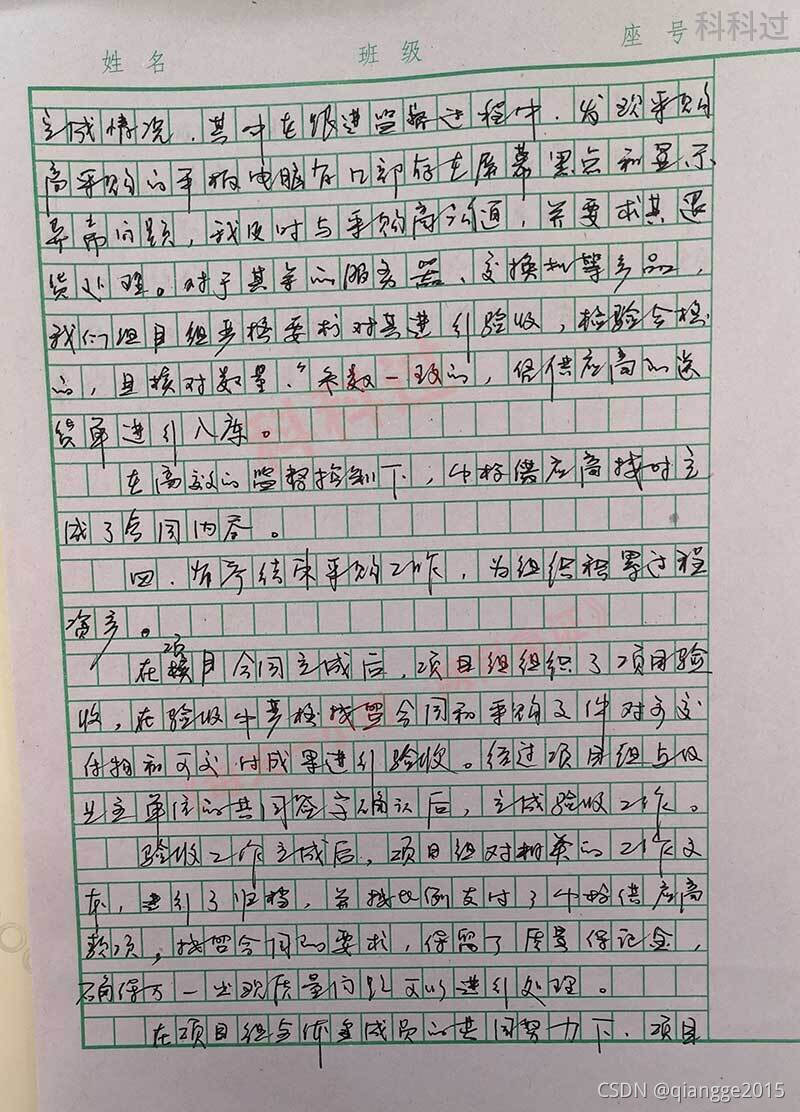 姓名 班级 座号 科科过
完成情况，其中在跟进监督过程中，发现采购
商采购的平板电脑有口部存在屏幕黑点和显示
异常问题，我及时与采购商沟通，并要求其退
货处理。对于其余的服务器、交换机等产品，
我们组目组严格要求对其进行验收，检验合格
的，且核对数量、参数一致的，凭供应商的送
货单进行入库。
在高效的监督控制下，中标供应商按时完
成了合同内容。
四、有序结束采购工作，为组织积累过程
资产。
在项目合同完成后，项目组组织了项目验
收，在验收中严格按照合同和采购文件对可交
付物和可交付成果进行验收。经过项目组与
业主单位的共同签字确认后，完成验收工作。
验收工作完成后，项目组对相关的工作文
本，进行了归档，并按比例支付了中标供应商
款项，按照合同的要求，保留了质量保证金，
确保万一出现质量问题可以进行处理。
在项目组全体成员的共同努力下，项目
科科过
CSDN @qiangge2015